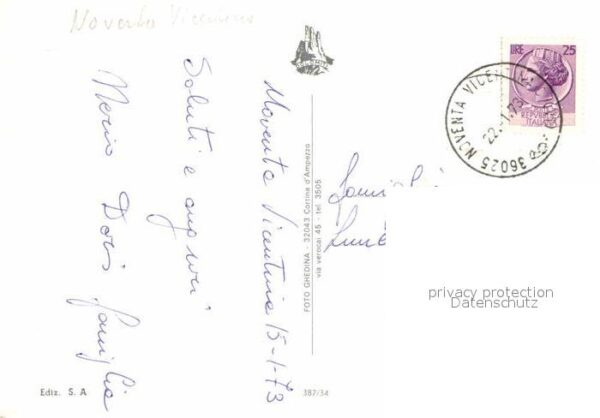 Noventa Vicentina
Noventa Vicentina 15-1-73
Saluti e auguri
Doris famiglia
FOTO GHEDINA - 32043 Cortina d'Ampezzo
via verocai 45 - tel. 3505
LIRE 25
REPVBBLICA
ITALIANA
36025 NOVENTA VICENTINA
22.-1.73
privacy protection
Datenschutz
Ediz. S. A
387/34